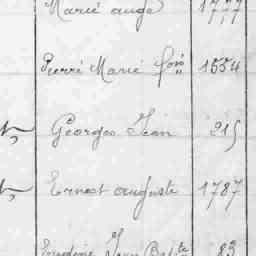 Marie ange 1777
Pierre Marie fois 1554
Georges Jean 215
Ernest auguste 1787
Jean Bapte 83